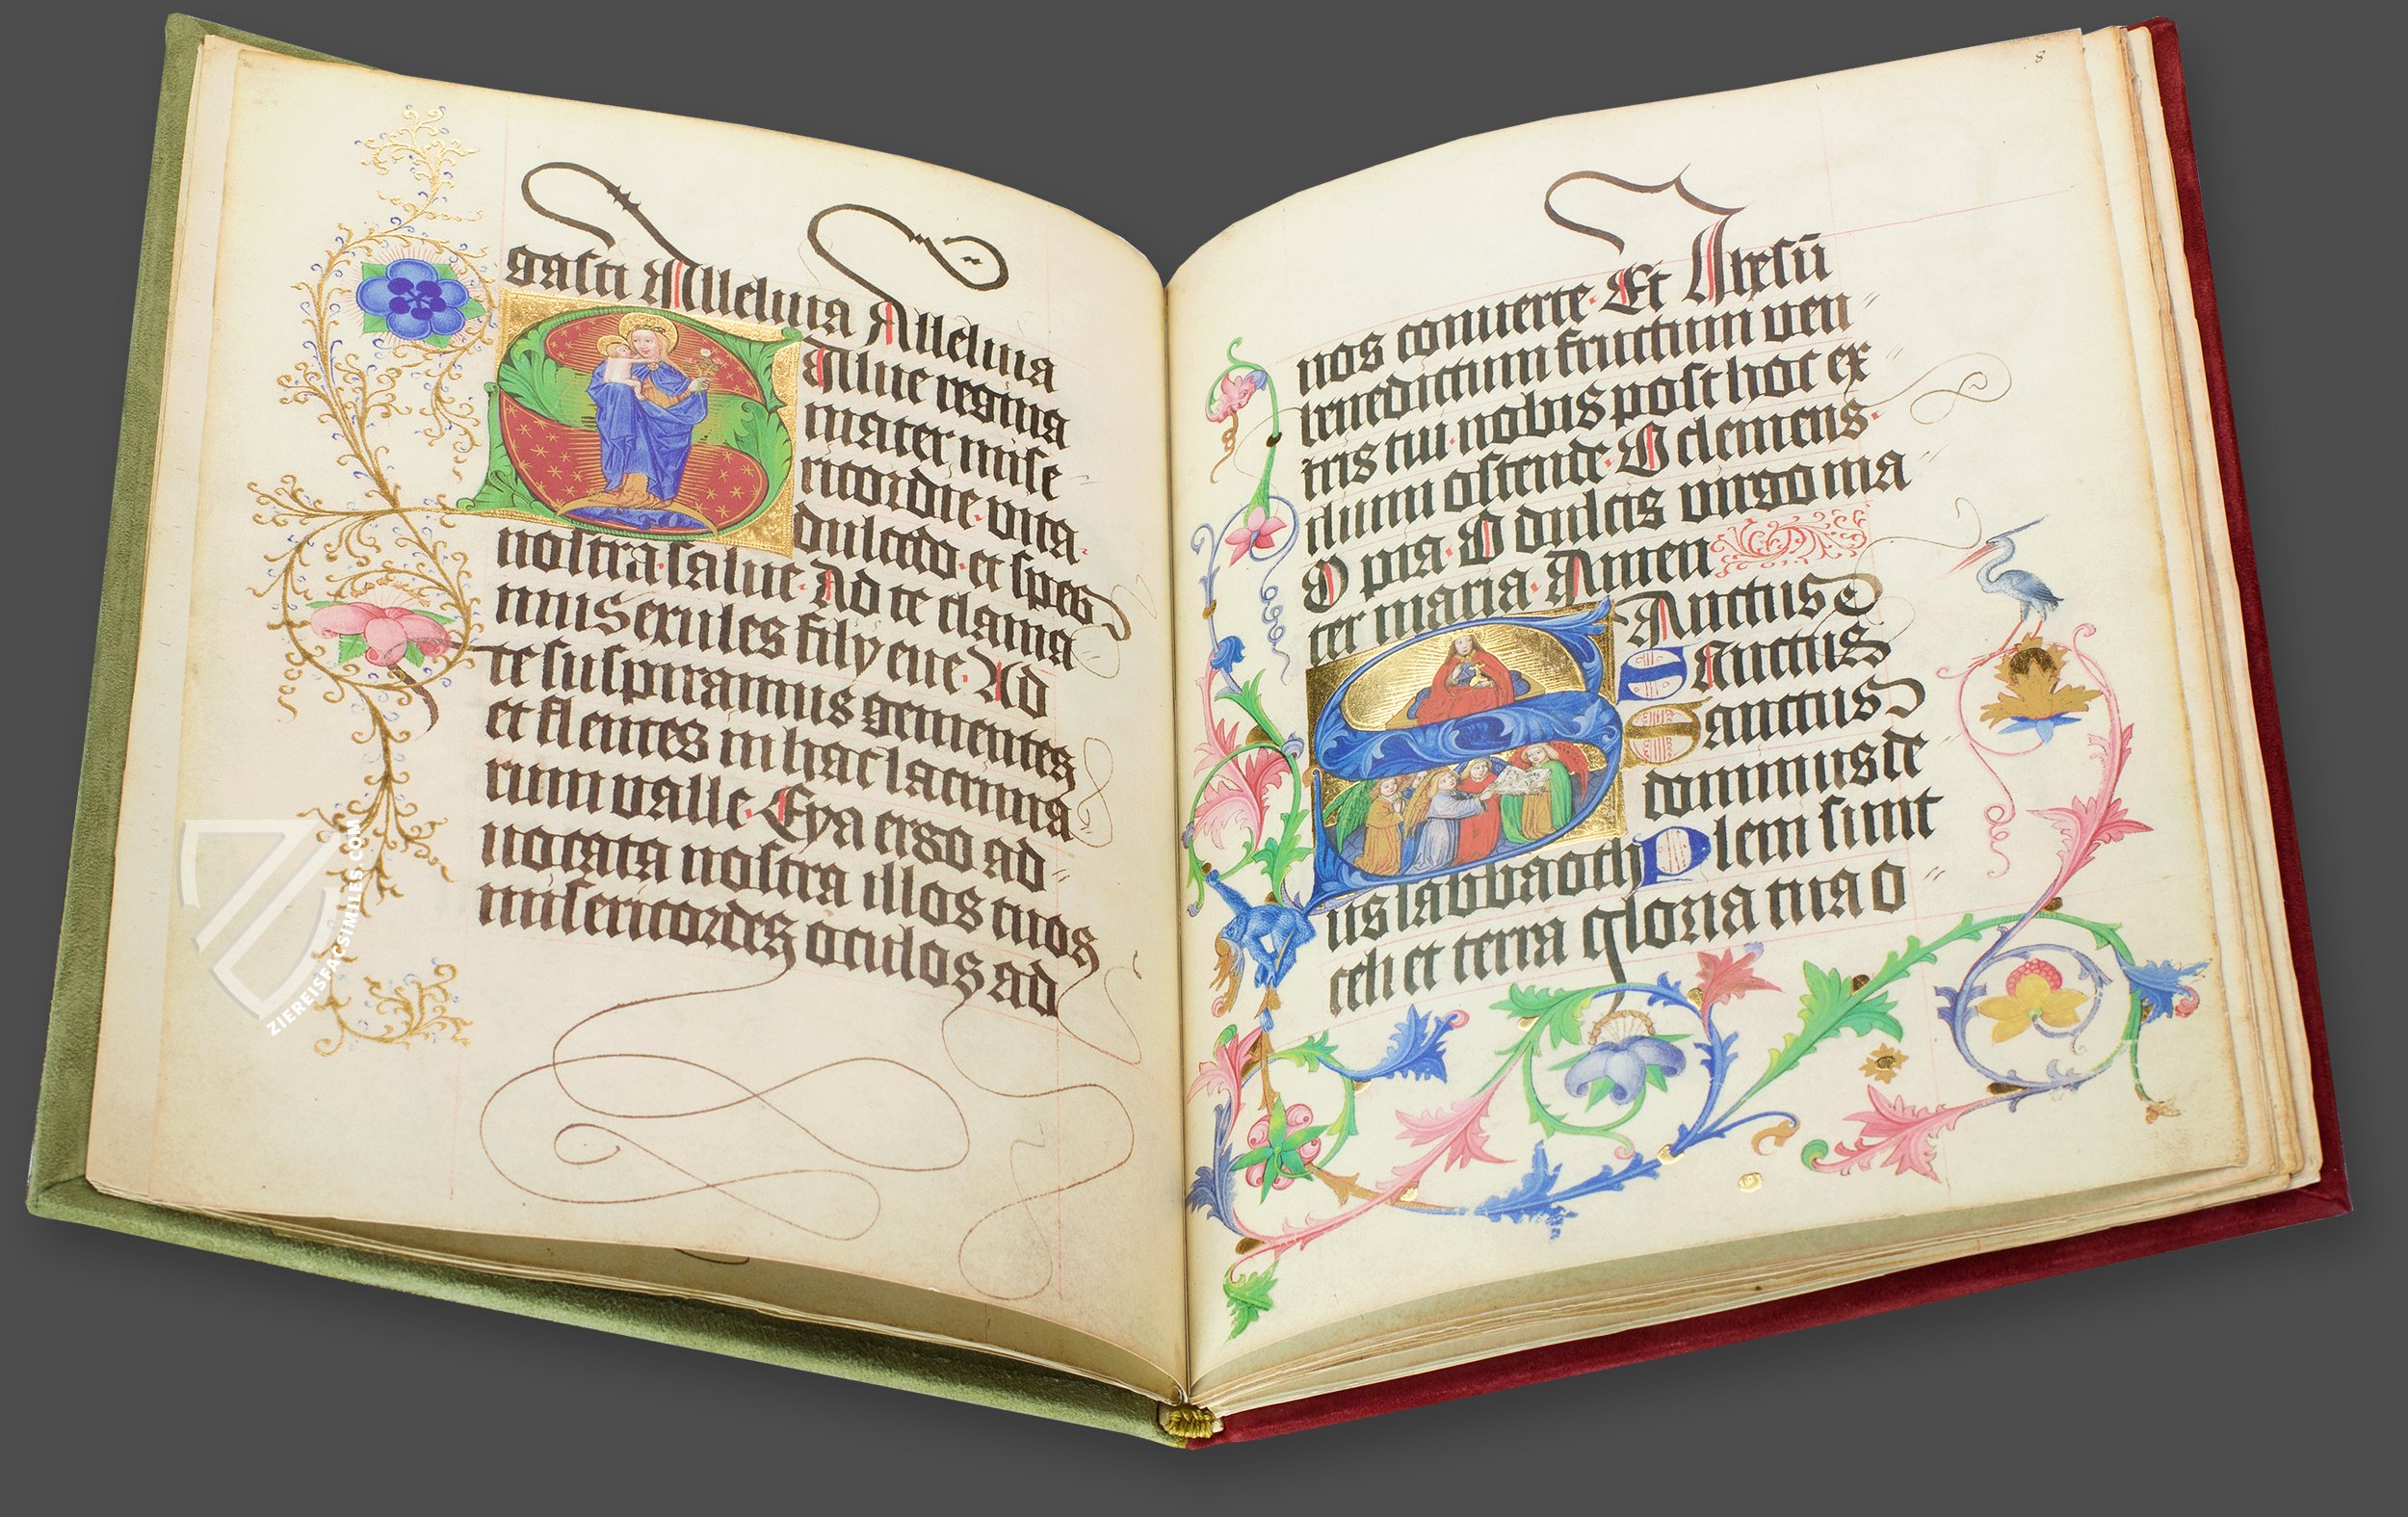 gasti Alleluia Alleluia
Salue regina
mater mise
ricordie·vita·
dulcedo·et spes
nostra·salue·Ad te clama
mus exules filij eue·Ad
te suspiramus gementes
et flentes in hac lacrima
rum valle·Eya ergo ad
uocata nostra illos tuos
misericordes oculos ad
8
nos conuerte·Et Ihesū
benedictum fructum ven
tris tui·nobis post hoc ex
ilium ostende·O clemens·
O pia·O dulcis virgo ma
ter maria·Amen
SAnctus
Sanctus
Sanctus
dominus de
us sabbaoth Pleni sunt
celi et terra gloria tua o
ZIEREISFACSIMILES.COM